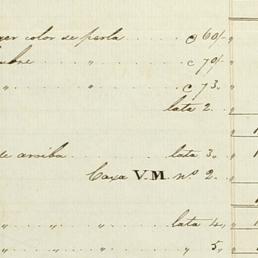 color de perla . . . . c 60/-
" . . . . c 70/-
. . . . c 73. "
lata 2. "
de arriba . . . . lata 3. "
Caxa V.M. nº 2. "
" " . . . . lata 4. "
" " . . . . " 5. "